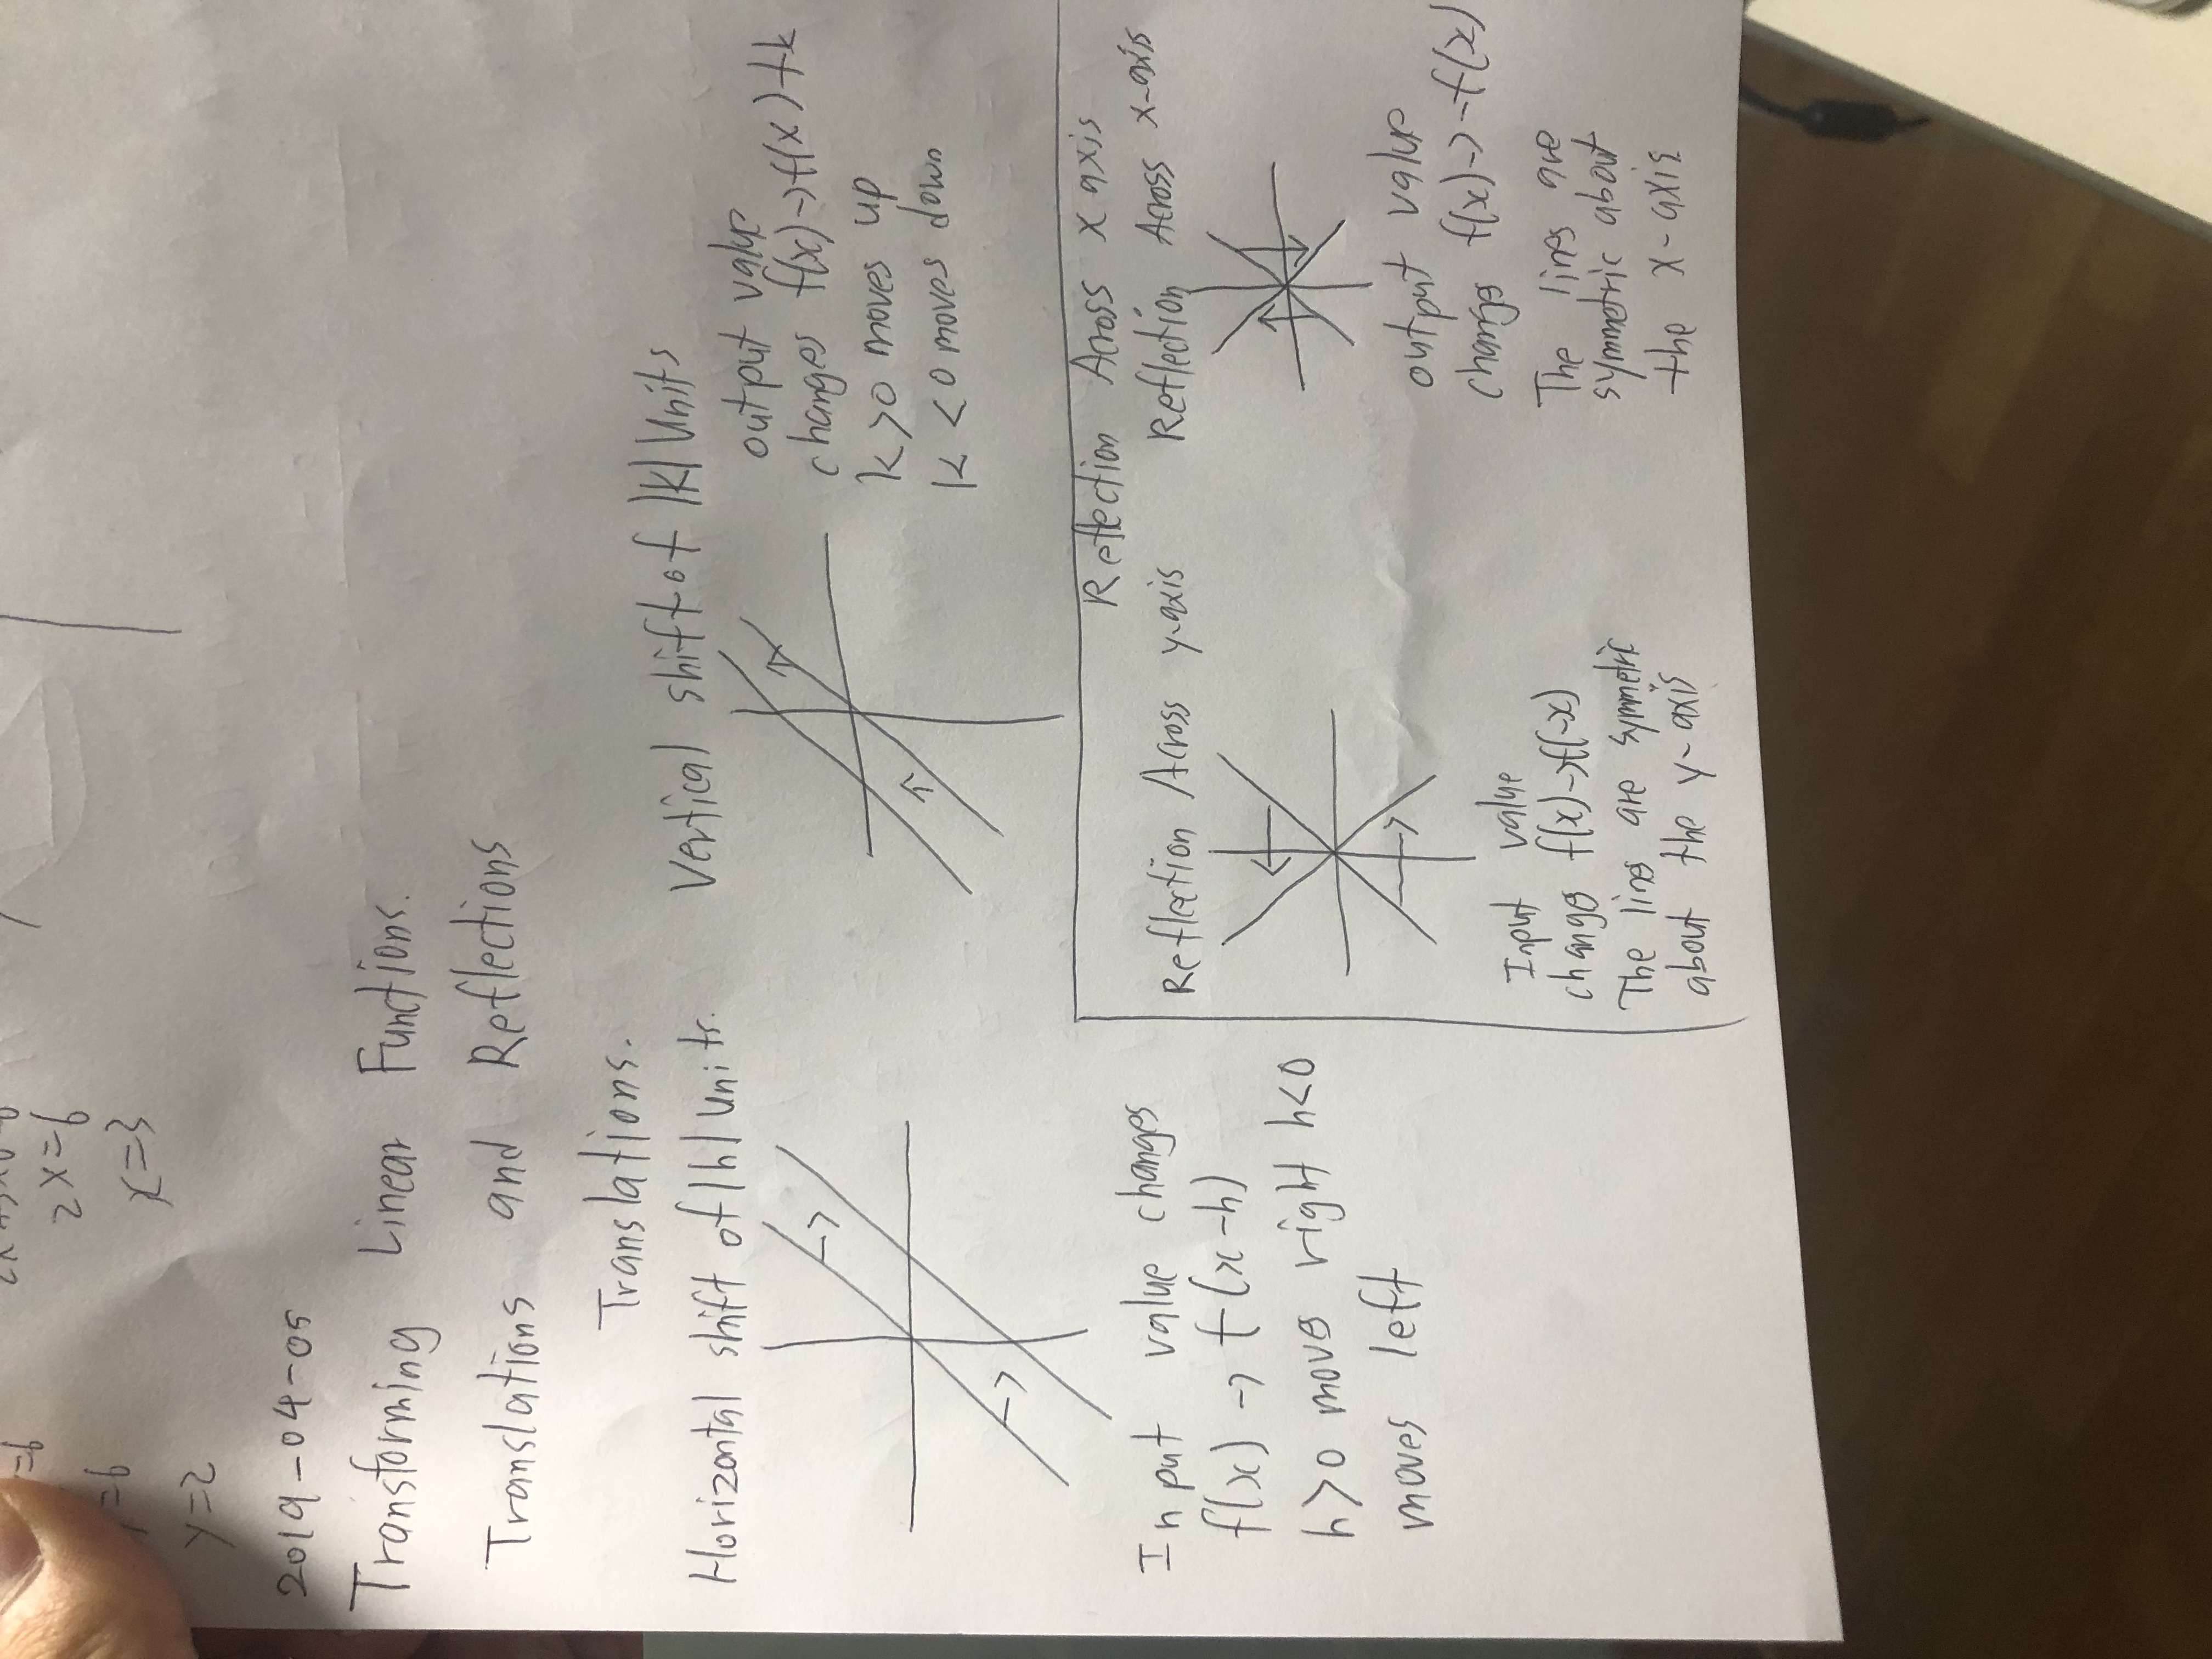 2x=6
x=3
y=2
2019-04-05
Transforming Linear Functions.
Translations and Reflections
Translations.
Horizontal shift of |h| Units.
Input value changes
f(x) → f(x-h)
h>0 moves right h<0
moves left
Vertical shift of |k| Units
output value
changes f(x)→f(x)+k
k>0 moves up
k<0 moves down
Reflection Across x axis
Reflection Across y-axis
Input value
changes f(x)→f(-x)
The lines are symmetric
about the y-axis
Reflection Across x-axis
output value
changes f(x)→-f(x)
The lines are
symmetric about
the x-axis